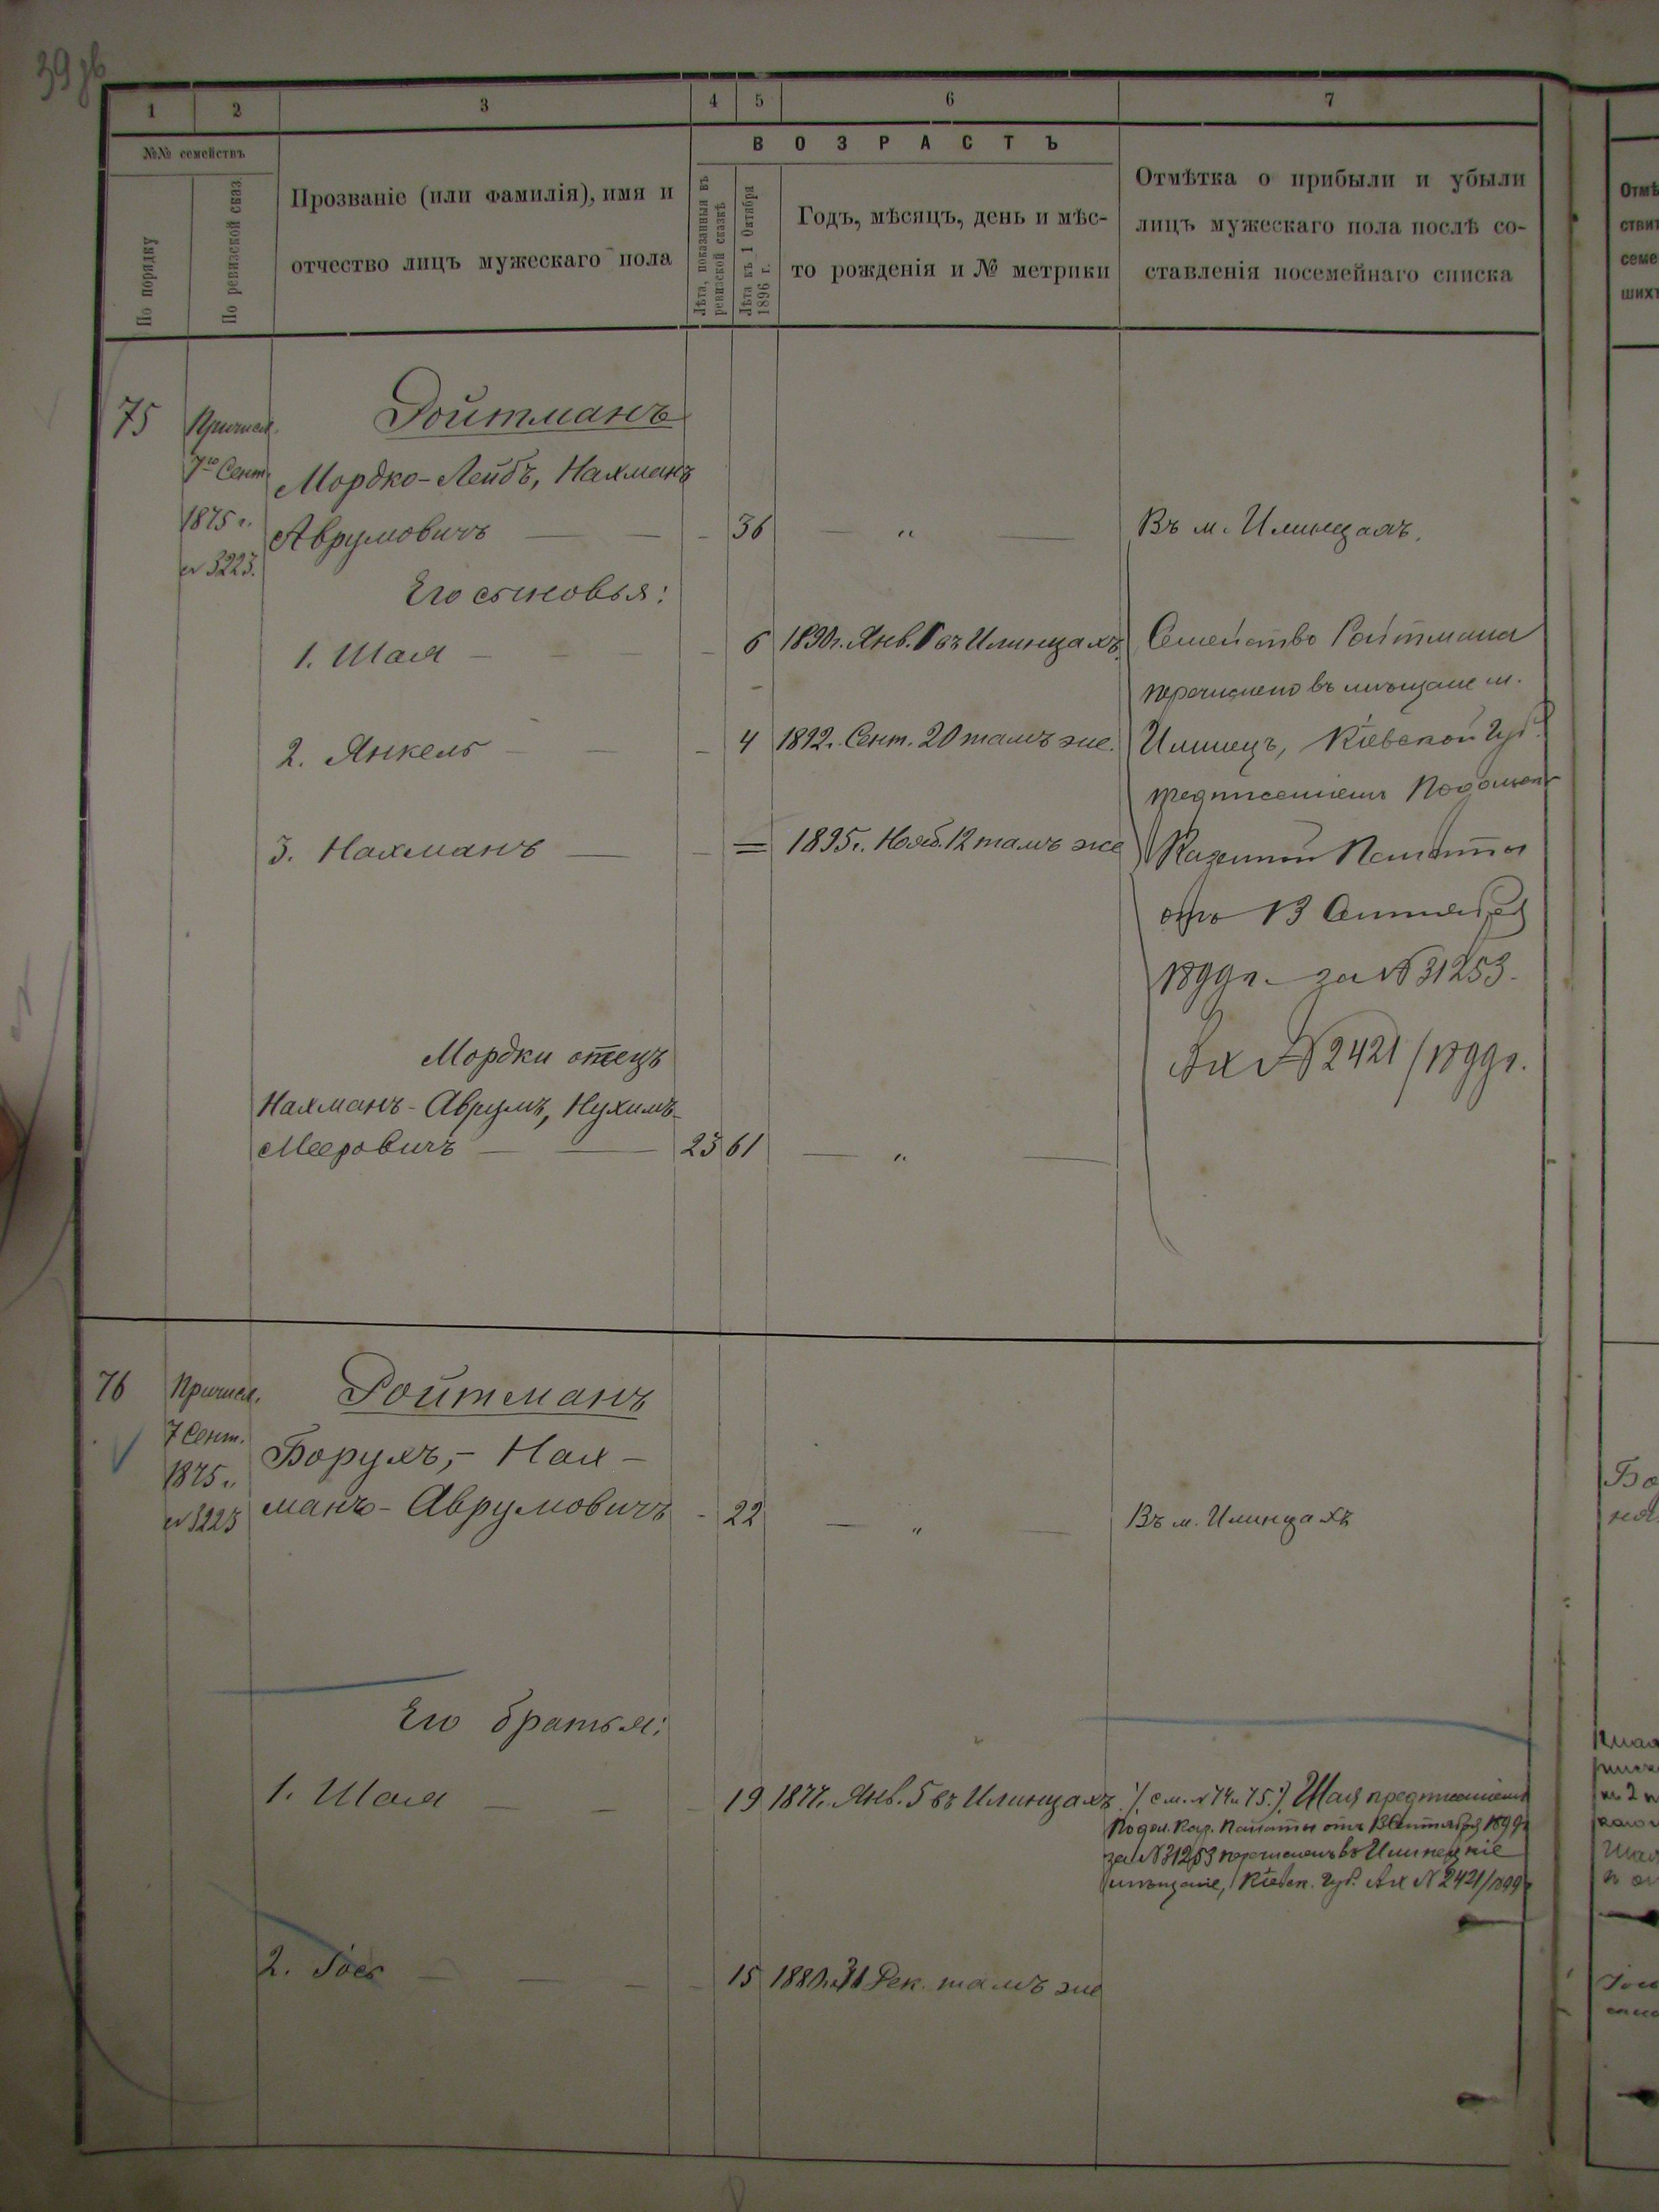 39 зв
1 2 3 4 5 6 7
№№ семействъ
По порядку
По ревизской сказ.
Прозваніе (или фамилія), имя и
отчество лицъ мужескаго пола
ВОЗРАСТЪ
Лѣта, показанныя въ
ревизской сказкѣ
Лѣта къ 1 Октября
1896 г.
Годъ, мѣсяцъ, день и мѣс-
то рожденія и № метрики
Отмѣтка о прибыли и убыли
лицъ мужескаго пола послѣ со-
ставленія посемейнаго списка
75 Причисл. Ройтманъ
7го Сент. Мордко-Лейбъ, Нахманъ
1875 г. Аврумовичъ — — - 36 — „ — Въ м. Илинцахъ.
№ 3223.
Его сыновья:
1. Шая — — — - 6 1890 г. Янв. въ Илинцахъ.
2. Янкель — — - 4 1892 г. Сент. 20 тамъ же.
3. Нахманъ — - = 1895 г. Нояб. 12 тамъ же
Семейство Ройтмана
перечислено въ мѣщане м.
Илинецъ, Кіевской Губ.
предписаніемъ Подольск.
Казенной Палаты
отъ 13 Сентября
1899 г. за № 31253.
Вх № 2421/1899 г.
Мордки отецъ
Нахманъ-Аврумъ, Нухимъ-
Мееровичъ — — 23 61 — „ —
76 Причисл. Ройтманъ
7 Сент. Борухъ,- Нах-
1875 г.
№ 3223 манъ-Аврумовичъ - 22 — „ — Въ м. Илинцахъ
Его братья:
1. Шая — — - 19 1877 г. Янв. 5 въ Илинцахъ. /см. № 74 и 75./ Шая предписаніемъ
Подол. Каз. Палаты отъ 13 Сентября 1899 г.
за № 31253 перечисленъ въ Илинецкіе
мѣщане, Кіевск. Губ. Вх № 2421/1899 г.
2. Іось — — — - 15 31 Дек. тамъ же